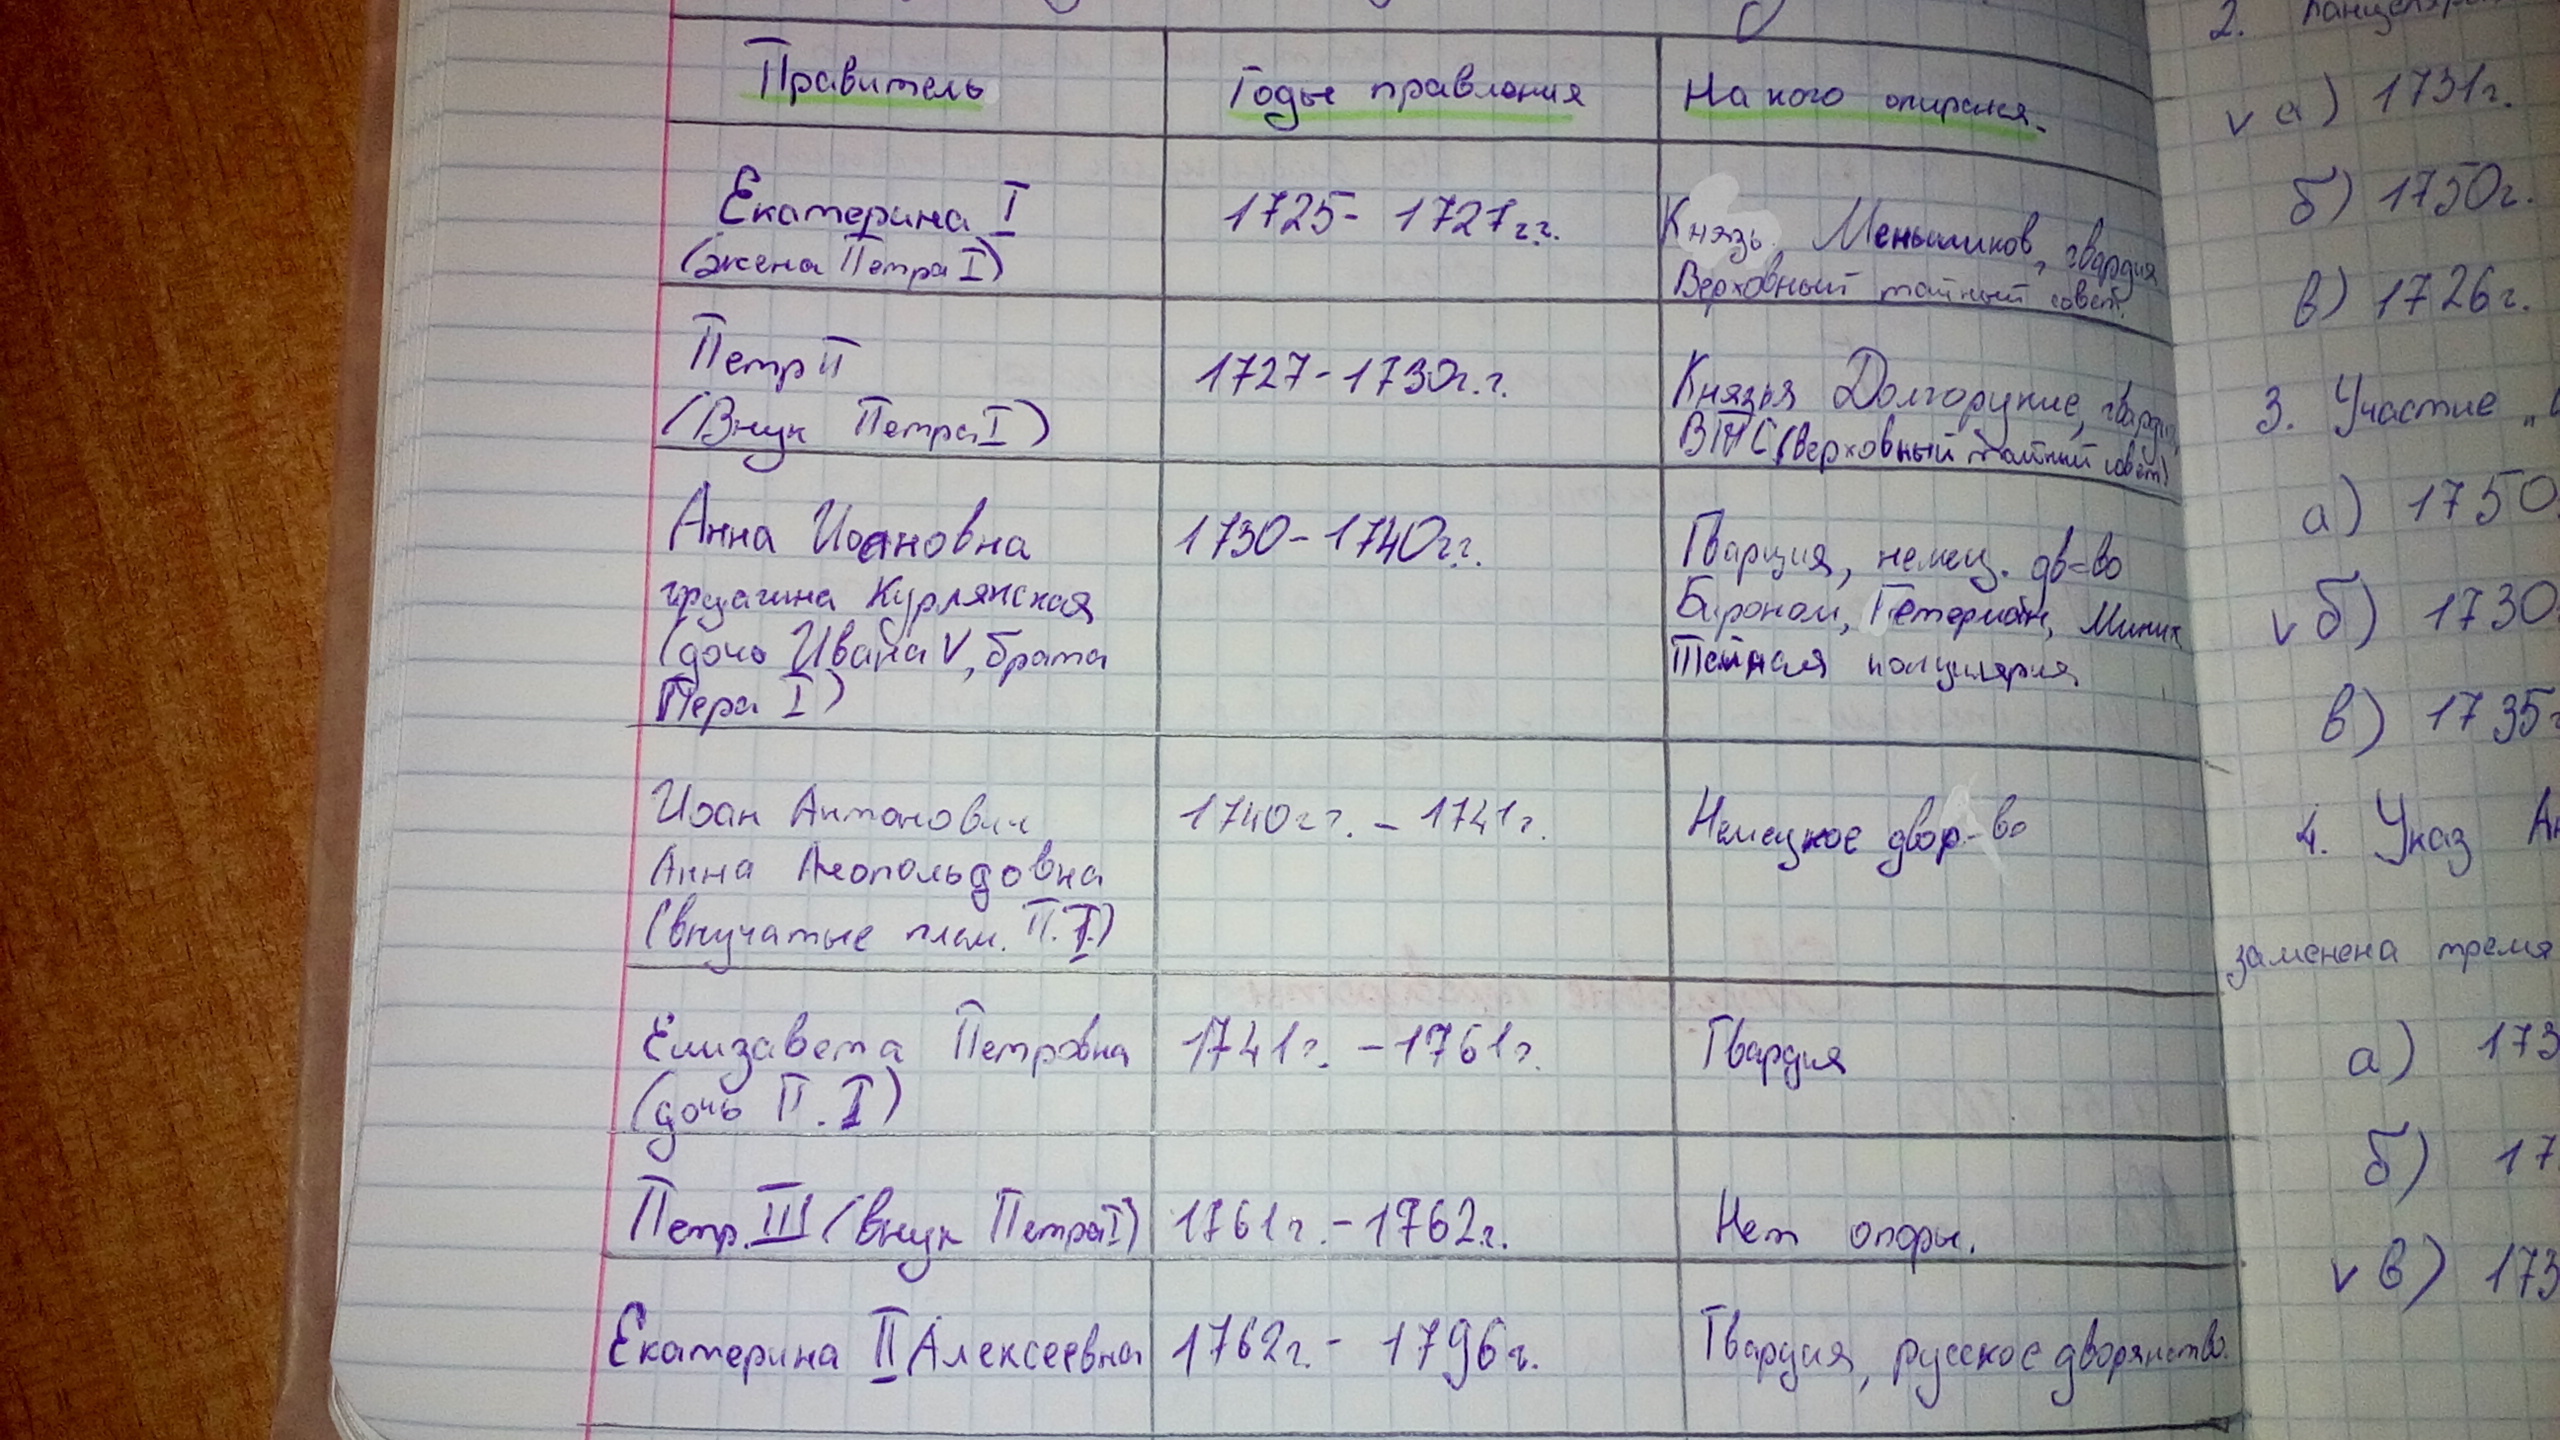 Правитель
Годы правления
На кого опирался
Екатерина I
(жена Петра I)
1725- 1727г.г.
Князь Меньшиков, гвардия
Верховный тайный совет.
Петр II
(Внук Петра I)
1727-1730г.г.
Князья Долгорукие, гвардия,
ВТС (Верховный тайный совет)
Анна Иоановна
грцагина Курлянская
(дочь Ивана V, брата
Пера I)
1730-1740гг.
Гварция, немец. дв-во
Бироном, Петерман, Миних
Тайная канцилярия
Иоан Антонович
Анна Леопольдовна
(внучатые плем. П.I.)
1740гг. - 1741г.
Немецкое двор-во
Елизавета Петровна
(дочь П. I)
1741г. -1761г.
Гвардия
Петр III (внук Петра I)
1761г. -1762г.
Нет опоры.
Екатерина II Алексеевна
1762г. - 1796г.
Гвардия, русское дворянство.
2. Канцеляри
v а) 1731г.
б) 1750г.
в) 1726г.
3. Участие „
а) 1750
v б) 1730
в) 1735г
4. Указ Ан
заменена тремя
а) 173
б) 17
v в) 173